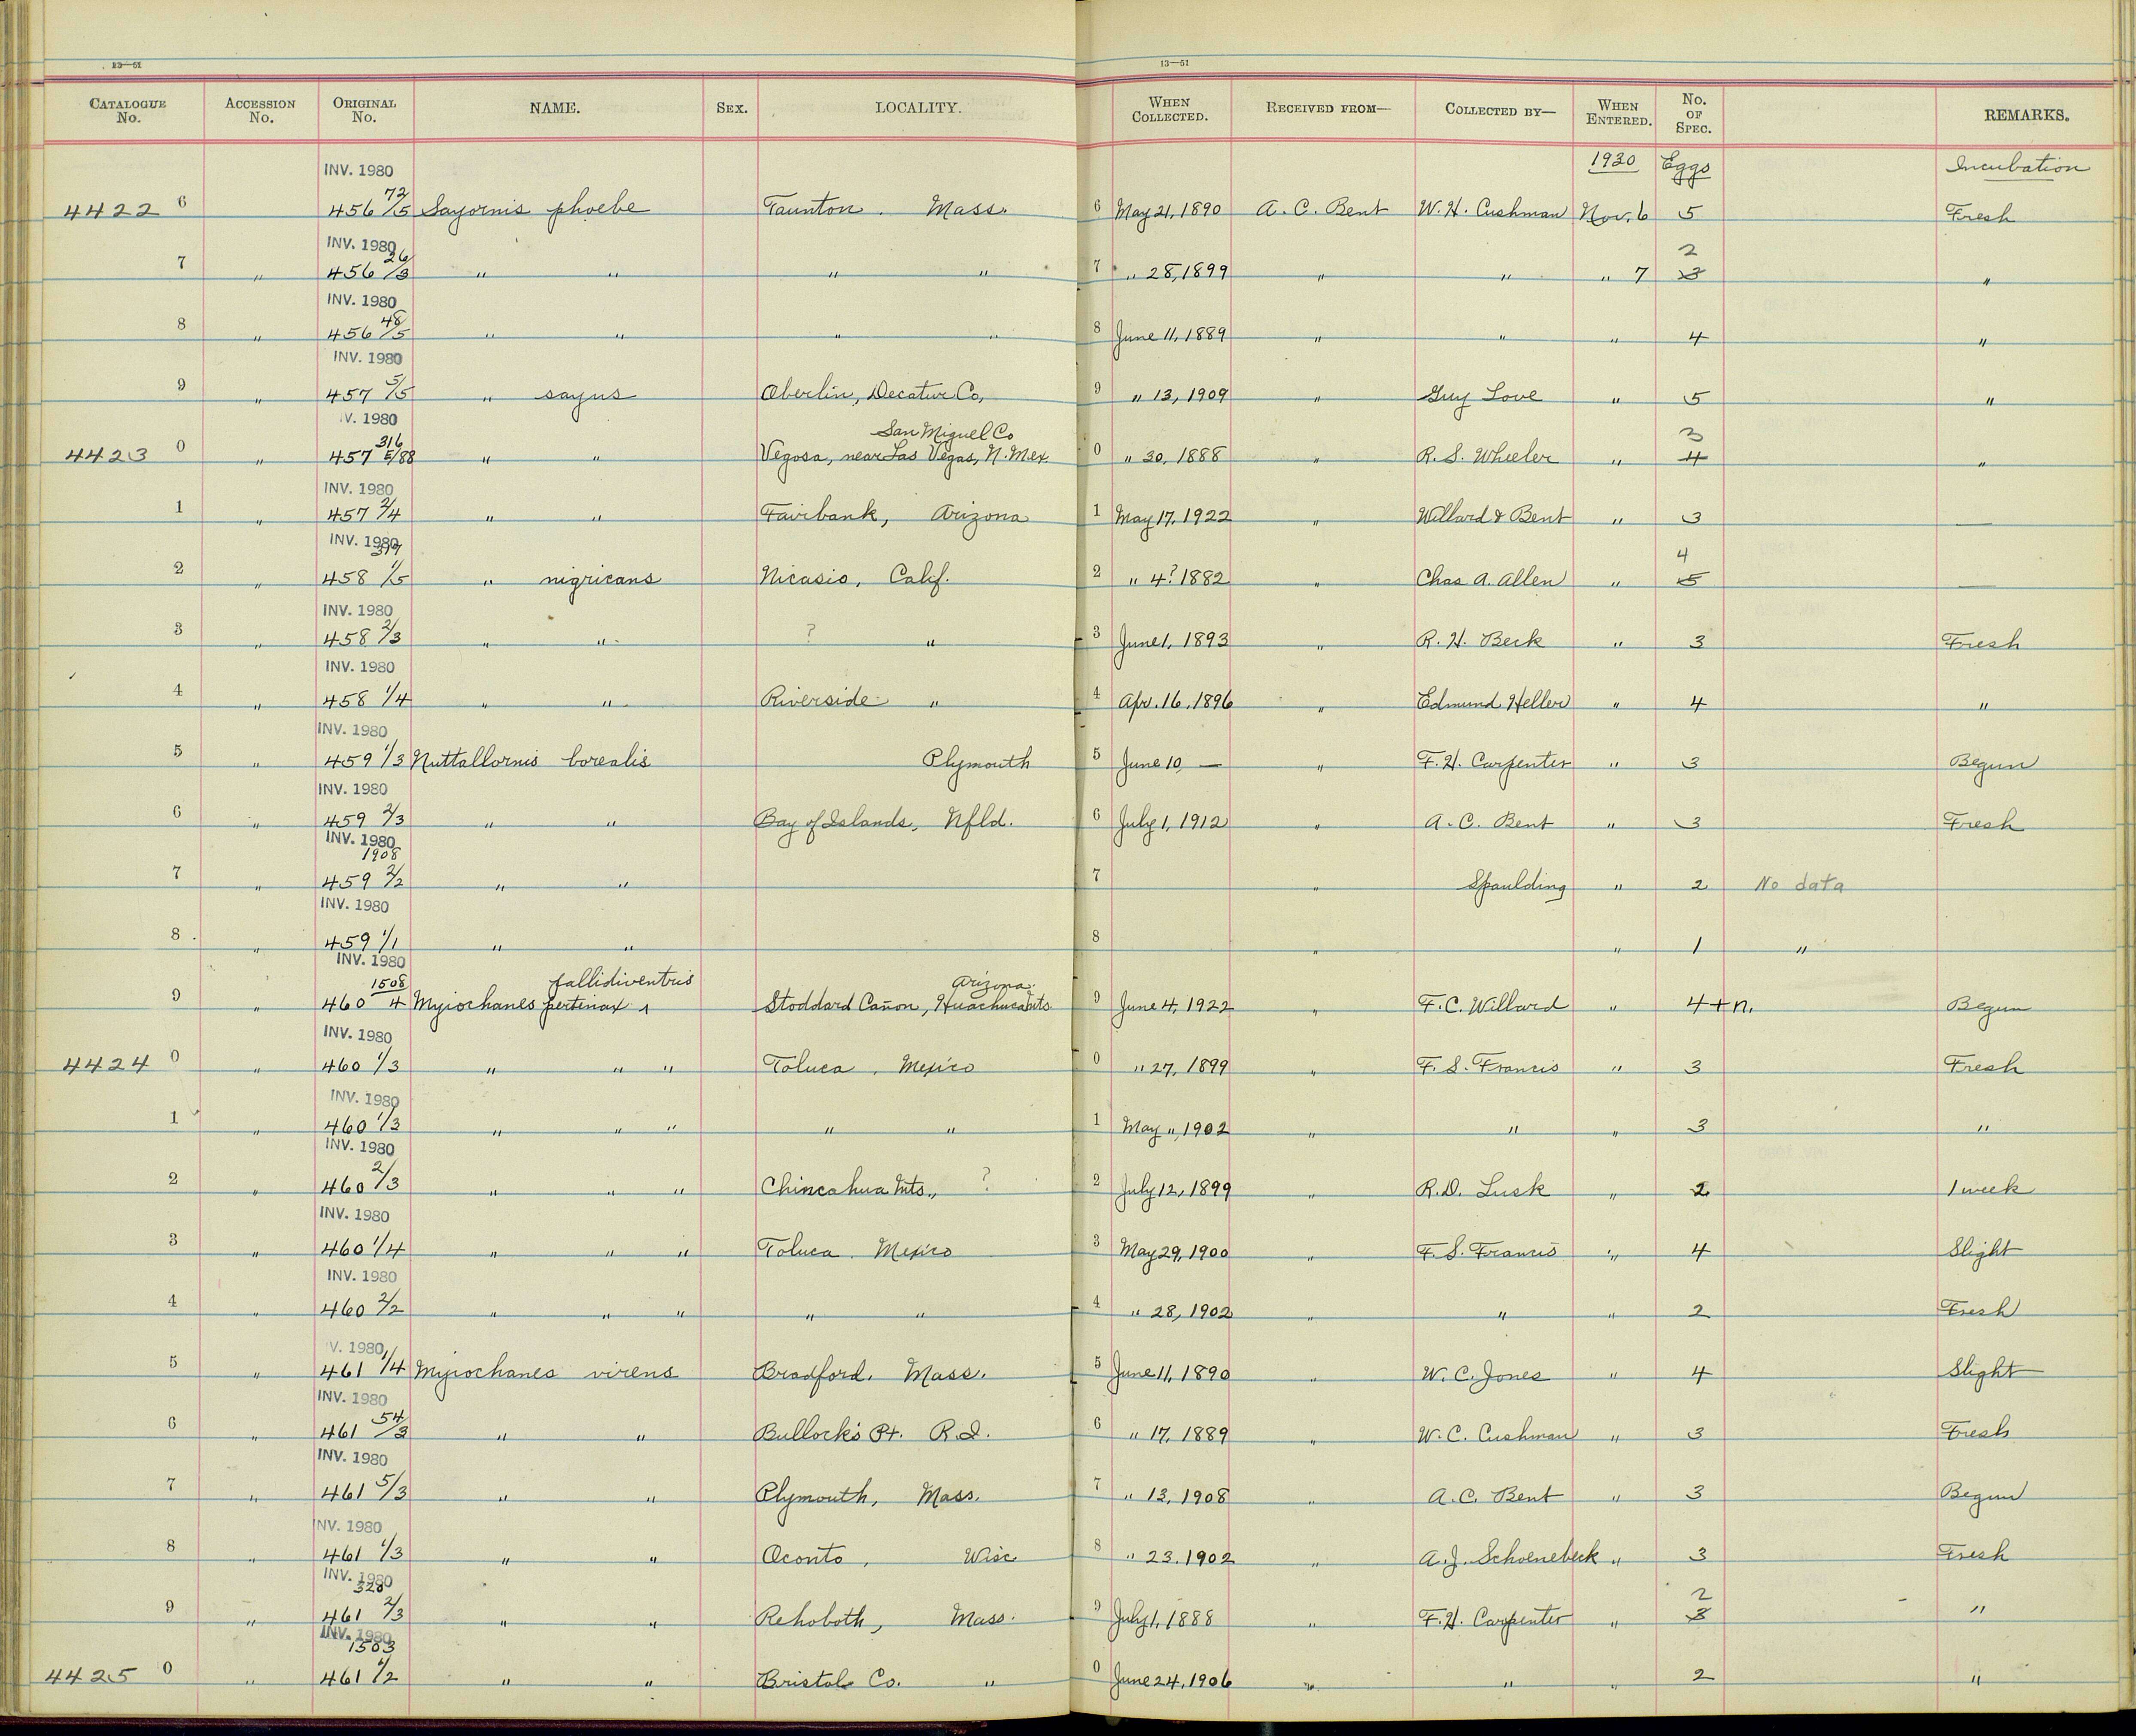 13—51 13—51
CATALOGUE No. ACCESSION No. ORIGINAL No. NAME. SEX. LOCALITY. WHEN COLLECTED. RECEIVED FROM— COLLECTED BY— WHEN ENTERED. No. OF SPEC. REMARKS.
INV. 1980 1930 Eggs Incubation
4422 6 456 72/5 Sayornis phoebe Taunton. Mass. 6 May 21, 1890 A. C. Bent W. H. Cushman Nov. 6 5 Fresh
INV. 1980 2
7 " 456 26/3 " " " " 7 " 28, 1899 " " " 7 3 "
INV. 1980
8 " 456 48/5 " " " " 8 June 11, 1889 " " " 4 "
INV. 1980
9 " 457 5/5 " sayus Oberlin, Decatur Co, 9 " 13, 1909 " Guy Love " 5 "
V. 1980
316 San Miguel Co 3
4423 0 " 457 5/88 " " Vegosa, near Las Vegas, N. Mex. 0 " 30, 1888 " R. S. Wheeler " 4 "
INV. 1980
1 " 457 2/4 " " Fairbank, Arizona 1 May 17, 1922 " Willard & Bent " 3 —
INV. 1980
317 4
2 " 458 1/5 " nigricans Nicasio, Calif. 2 " 4? 1882 " Chas A. Allen " 5 —
INV. 1980
3 " 458 2/3 " " ? " 3 June 1, 1893 " R. H. Beck " 3 Fresh
INV. 1980
4 " 458 1/4 " " Riverside " 4 Apr. 16, 1896 " Edmund Heller " 4 "
INV. 1980
5 " 459 1/3 Nuttallornis borealis Plymouth 5 June 10, — " F. H. Carpenter " 3 Begun
INV. 1980
6 " 459 2/3 " " Bay of Islands, Nfld. 6 July 1, 1912 " A. C. Bent " 3 Fresh
INV. 1980
1908
7 " 459 2/2 " " 7 " Spaulding " 2 No data
INV. 1980
8 " 459 1/1 " " 8 " " 1 "
INV. 1980
1508 pallidiventris Arizona.
9 " 460 4 Myiochanes pertinax ^ Stoddard Cañon, Huachuca Mts. 9 June 4, 1922 " F. C. Willard " 4 + n. Begun
INV. 1980
4424 0 " 460 1/3 " " " Toluca, Mexico 0 " 27, 1899 " F. S. Francis " 3 Fresh
INV. 1980
1 " 460 1/3 " " " " " 1 May ", 1902 " " " 3 "
INV. 1980
2 " 460 2/3 " " " Chincahua Mts., ? 2 July 12, 1899 " R. D. Lusk " 2 1 week
INV. 1980
3 " 460 1/4 " " " Toluca. Mexico 3 May 29, 1900 " F. S. Francis " 4 Slight
INV. 1980
4 " 460 2/2 " " " " " 4 " 28, 1902 " " " 2 Fresh
V. 1980
5 " 461 1/4 Myiochanes virens Bradford. Mass. 5 June 11, 1890 " W. C. Jones " 4 Slight
INV. 1980
6 " 461 54/3 " " Bullock's Pt. R.I. 6 " 17, 1889 " W. C. Cushman " 3 Fresh
INV. 1980
7 " 461 5/3 " " Plymouth, Mass. 7 " 13, 1908 " A. C. Bent " 3 Begun
NV. 1980
8 " 461 1/3 " " Oconto, Wisc 8 " 23. 1902 " A. J. Schoenebeck " 3 Fresh
INV. 1980
328 2
9 " 461 2/3 " " Rehoboth, Mass. 9 July 1, 1888 " F. H. Carpenter " 3 "
INV. 1980
1503
4425 0 " 461 1/2 " " Bristol Co. " 0 June 24, 1906 " " " 2 "